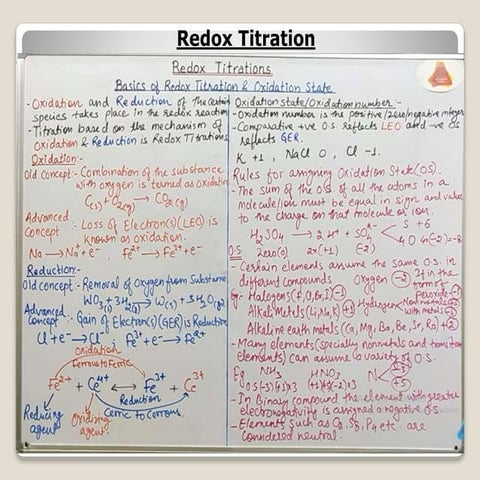 Redox Titration
Redox Titrations
Basics of Redox Titration & Oxidation State
- Oxidation and Reduction of the certain
species takes place in the redox reaction
- Titration based on the mechanism of
Oxidation & Reduction is Redox Titrations
Oxidation:-
Old Concept:- Combination of the substance
with oxygen is termed as oxidation
C(s) + O2(g) → CO2(g)
Advanced Concept :- Loss of Electron(s)(LEO) is
known as oxidation.
Na → Na+ + e-, Fe2+ → Fe3+ + e-
Reduction:-
Old concept:- Removal of oxygen from substance
WO3 + 3H2(g) → W(s) + 3H2O(g)
Advanced Concept :- Gain of Electron(s)(GER) is Reduction
Cl + e- → Cl-; Fe3+ + e- → Fe2+
Oxidation
Ferrous to Ferric
Fe2+ + Ce4+ ↔ Fe3+ + Ce3+
Reduction
Ceric to Cerrous.
Reducing agent
Oxidizing agent.
Oxidation state/Oxidation number:-
- Oxidation number is the positive/zero/negative integer
- Comparative +ve O.S reflects LEO and -ve OS
reflects GER.
K +1, NaCl 0, Cl -1.
Rules for assigning Oxidation State(OS).
- The sum of the O.S. of all the atoms in a
molecule/ion must be equal in sign and value
to the charge on that molecule or ion.
H2SO4 → 2H+ + SO4 2- S +6
4 O 4(-2) = -8
O.S Zero(0) 2x(+1) (-2)
- Certain elements assume the same O.S. in
different compounds Oxygen -2 If in the form of Peroxide -1
eg:- Halogens (F, Cl, Br, I) -1 Hydrogen Nonmetals +1
with metals -1
Alkali Metals (Li, Na, K) +1
Alkaline earth metals (Ca, Mg, Ba, Be, Sr, Ra) +2
- Many elements (specially nonmetals and transition
elements) can assume a variety of O.S.
Eg. NH3 HNO3 N -3 +5
O.S (-3) (+1)x3 (+1) (+5) (-2)x3
- In Binary compound the element with greater
electronegativity is assigned a negative O.S.
- Elements such as O2, S8, P4 etc. are
considered neutral.